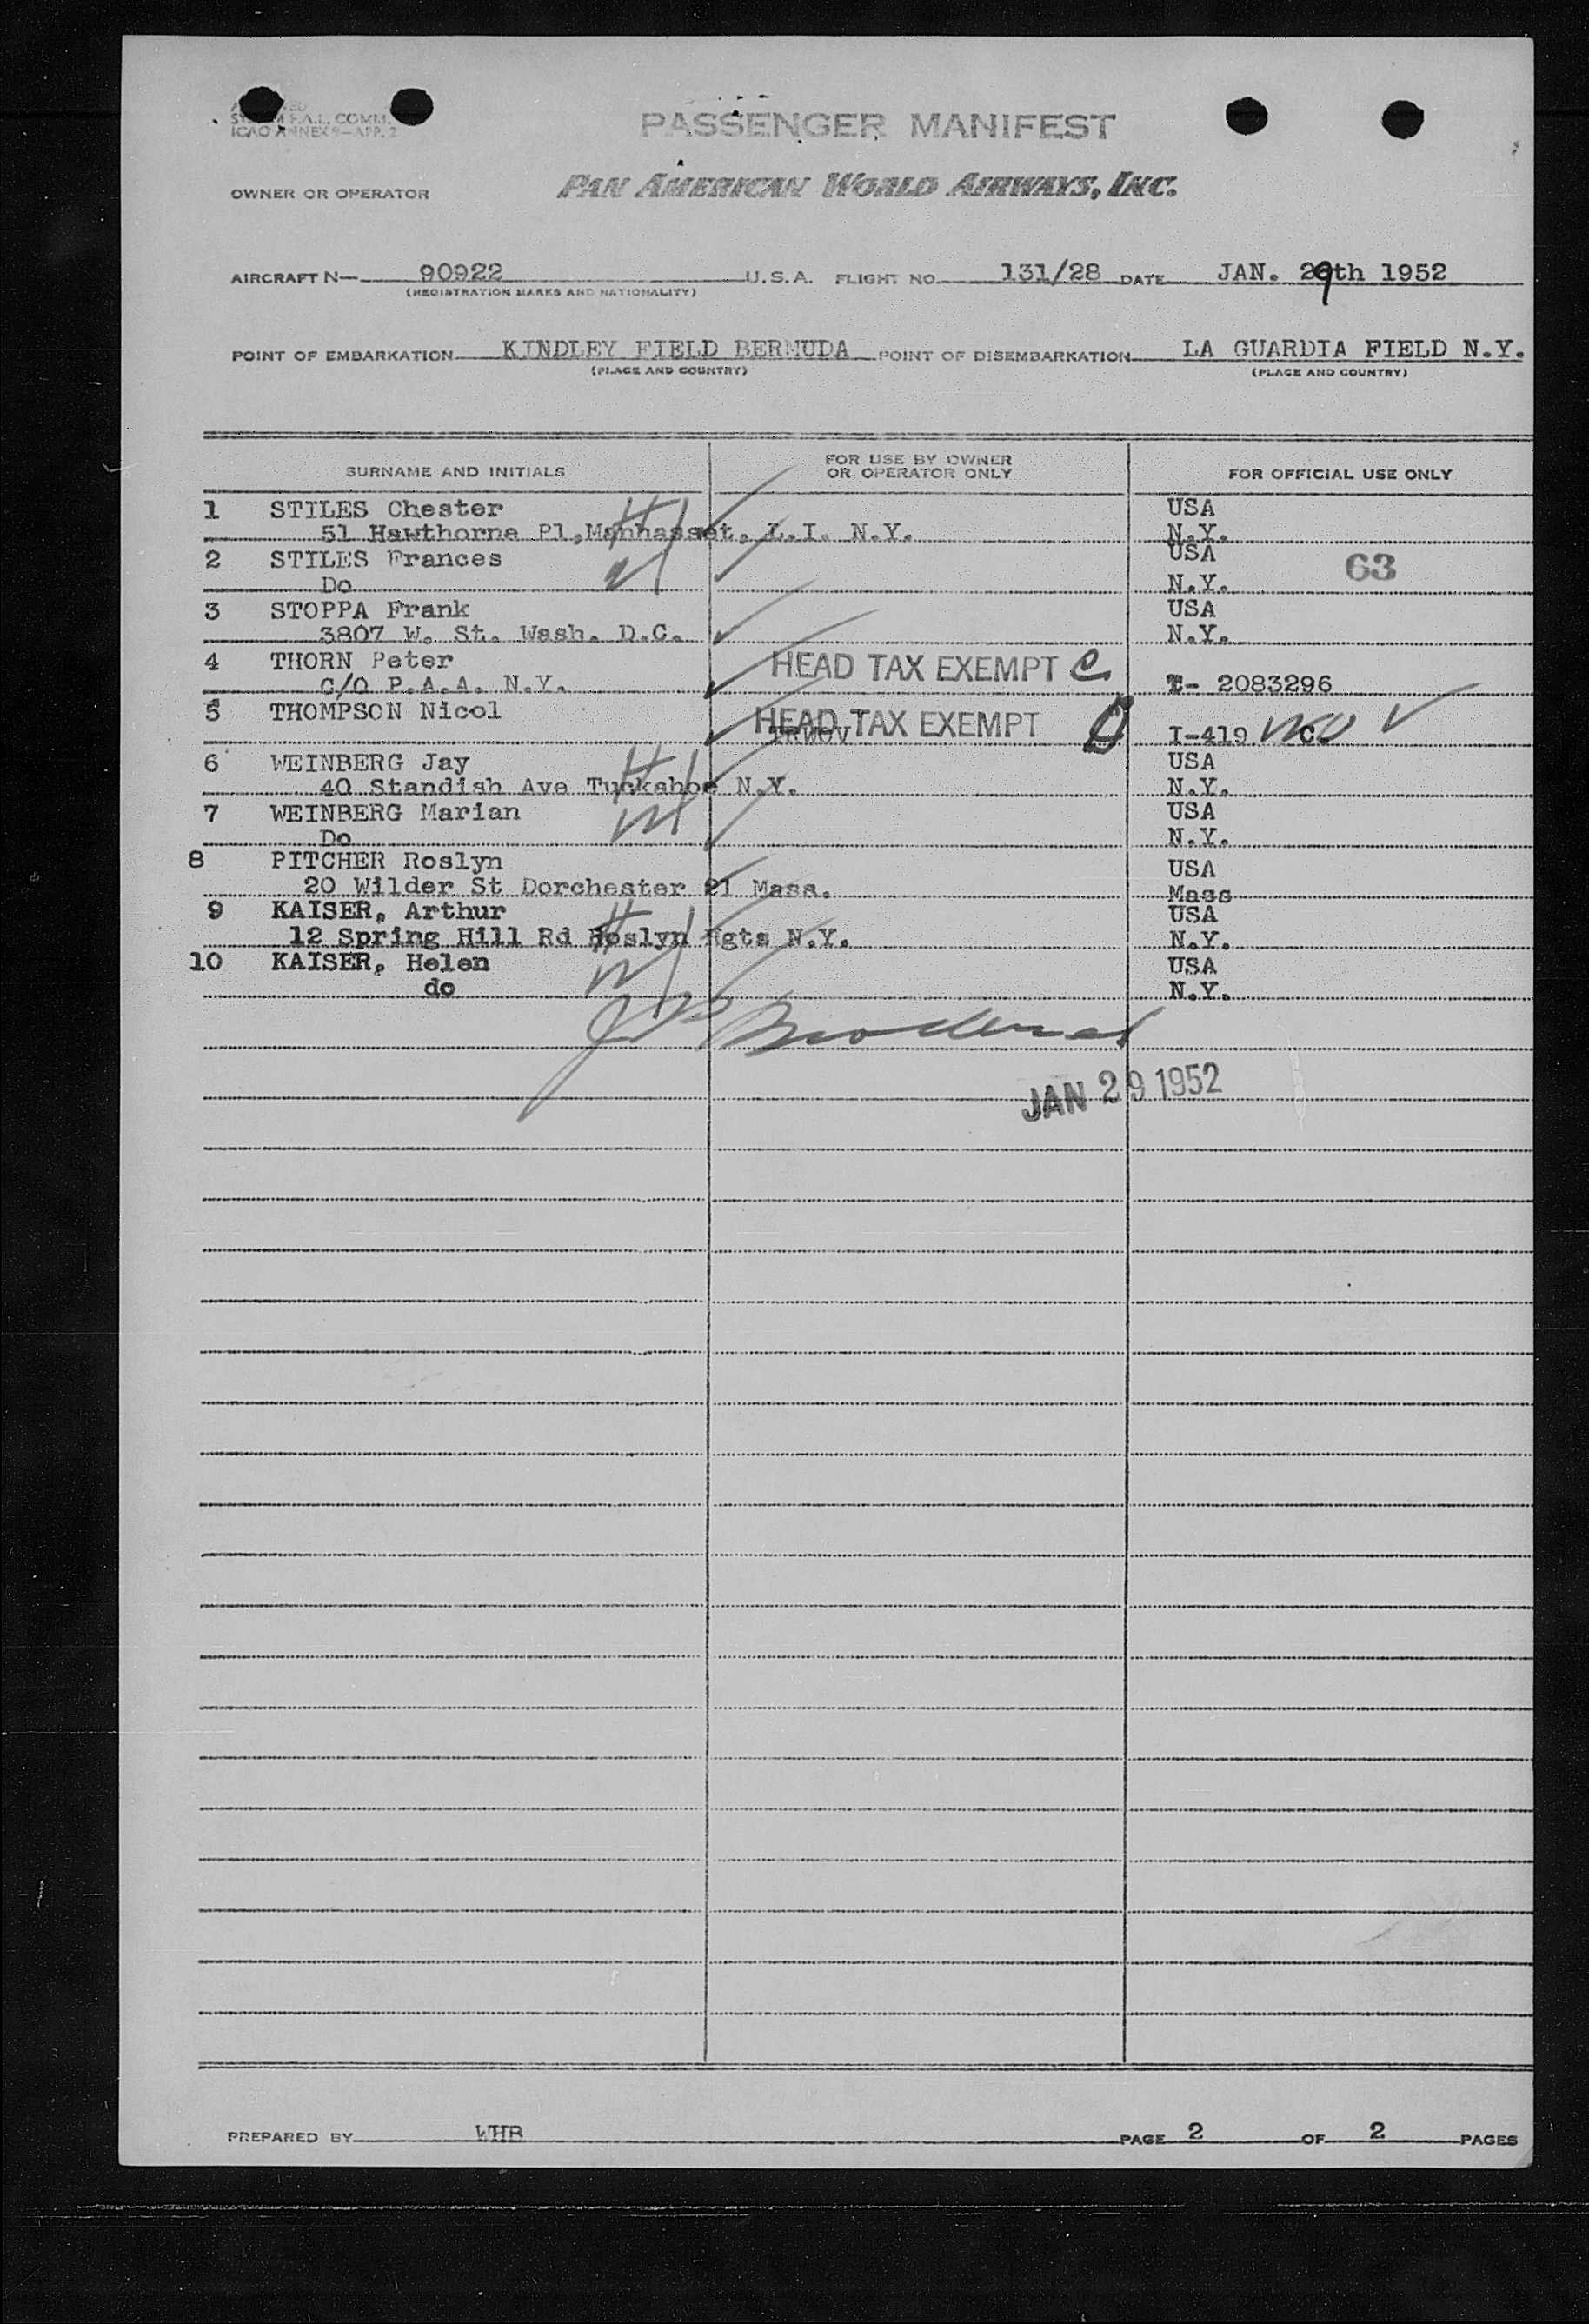 F.A.L. COMM.
ICAO ANNEX 9—APP. 2
PASSENGER MANIFEST
OWNER OR OPERATOR PAN AMERICAN WORLD AIRWAYS, INC.
AIRCRAFT N— 90922 U.S.A. FLIGHT NO. 131/28 DATE JAN. 29th 1952
(REGISTRATION MARKS AND NATIONALITY)
POINT OF EMBARKATION KINDLEY FIELD BERMUDA POINT OF DISEMBARKATION LA GUARDIA FIELD N.Y.
(PLACE AND COUNTRY) (PLACE AND COUNTRY)
SURNAME AND INITIALS FOR USE BY OWNER OR OPERATOR ONLY FOR OFFICIAL USE ONLY
1 STILES Chester USA
51 Hawthorne Pl, Manhasset, L.I. N.Y. N.Y.
2 STILES Frances USA 63
Do N.Y.
3 STOPPA Frank USA
3807 W. St. Wash. D.C. N.Y.
4 THORN Peter HEAD TAX EXEMPT C
C/O P.A.A. N.Y. T- 2083296
5 THOMPSON Nicol HEAD TAX EXEMPT
I-419 C
6 WEINBERG Jay USA
40 Standish Ave Tuckahoe N.Y. N.Y.
7 WEINBERG Marian USA
Do N.Y.
8 PITCHER Roslyn USA
20 Wilder St Dorchester 21 Mass. Mass
9 KAISER, Arthur USA
12 Spring Hill Rd Roslyn Hgts N.Y. N.Y.
10 KAISER, Helen USA
do N.Y.
JAN 29 1952
PREPARED BY WHB PAGE 2 OF 2 PAGES